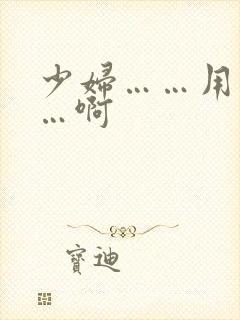 少婦……用
…啊
寶迪